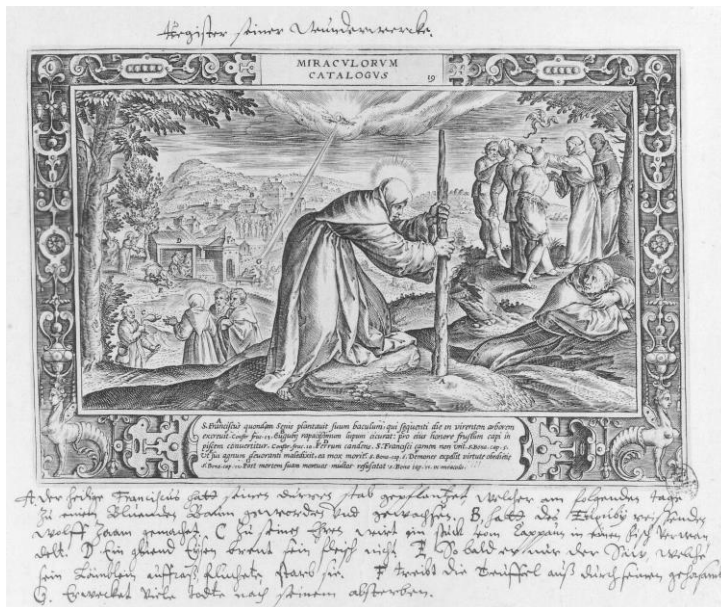 Register seiner Wunderwercke.
MIRACVLORVM
CATALOGVS 19
D
S. Franciscus quondam Senis plantauit suum baculum: qui sequenti die in virentem arborem
excreuit. Confor. fruc. Eugubÿ rapacissimum lupum cicurat: pro eius honore frustum capi in
piscem conuertitur. Confor. fruc. Ferrum candens, S. Francisci carnem non vrit. S. Bona. cap. 5.
Vt sui agnum deuoranti maledixit, ea mox morit. S. Bona. cap. Demones expulit virtute obedientie
S. Bona. cap. Post mortem suam mortuos multos resuscitat. S. Bona cap. de miracul.
A. Der heilige Franciscus hatt seinen dürren stab gepflantzet welcher am folgenden tage
zu einem Blüenden Baum geworden und gewachsen B. hatt des Eugubÿ reissenden
wolff Zaam gemacht. C zu seines Ehren wirt ein stück vom Cappaun in einen fisch verwan
delt. D Ein gluend Eysen brent sein fleisch nicht. E. So bald er nur der Säw, welche
sein Lämblein auffraß fluchete starb sie. F treibt die Teuffel auß durch seinen gehorsam
G. Erwecket viele todte nach seinem absterben.